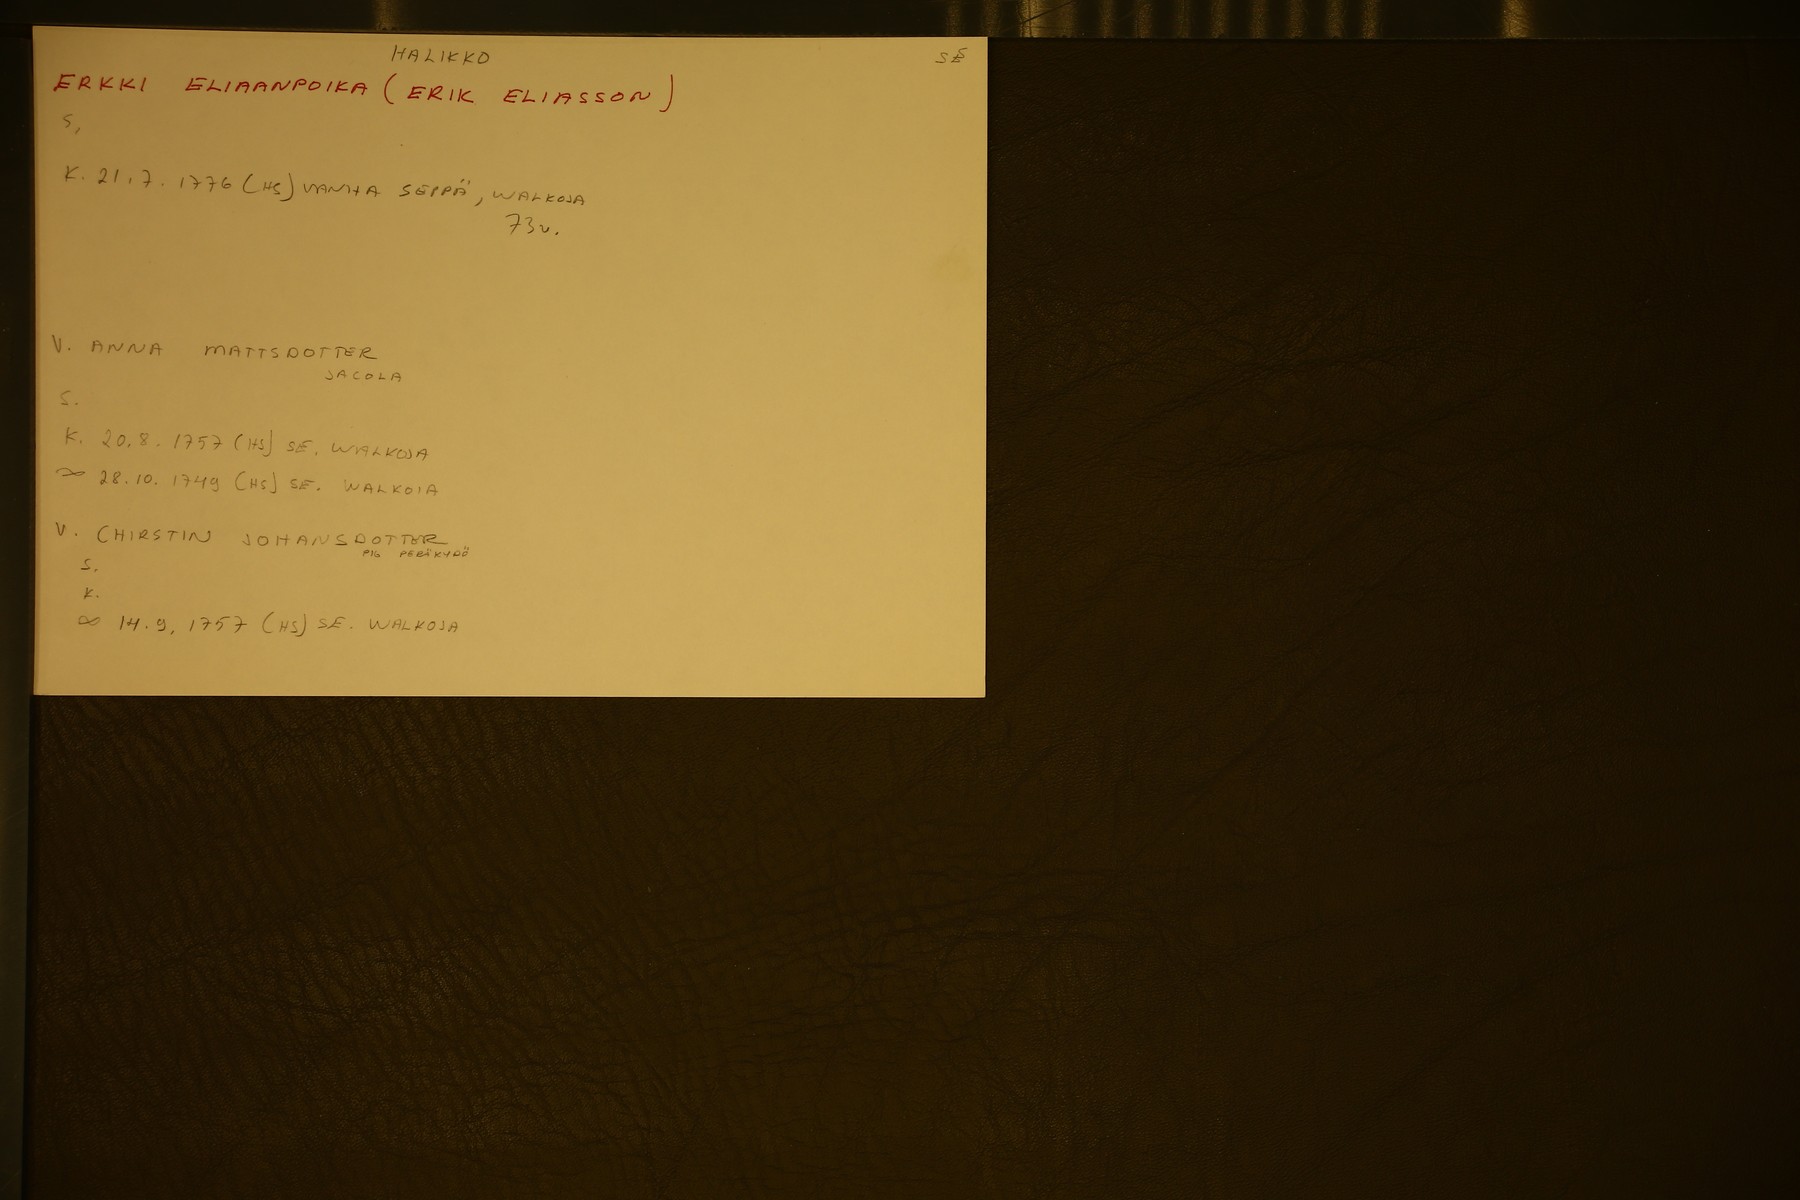 HALIKKO
SE
ERKKI ELIAANPOIKA (ERIK ELIASSON)
S,
K. 21.7. 1776 (HS) VANHA SEPPÄ, WALKOJA
73v.
V. ANNA MATTSDOTTER
JACOLA
S.
K. 20.8. 1757 (HS) SE. WALKOJA
∞ 28.10. 1749 (HS) SE. WALKOJA
V. CHIRSTIN JOHANSDOTTER
PIG PERÄKYDÖ
S.
K.
∞ 14.9. 1757 (HS) SE. WALKOJA